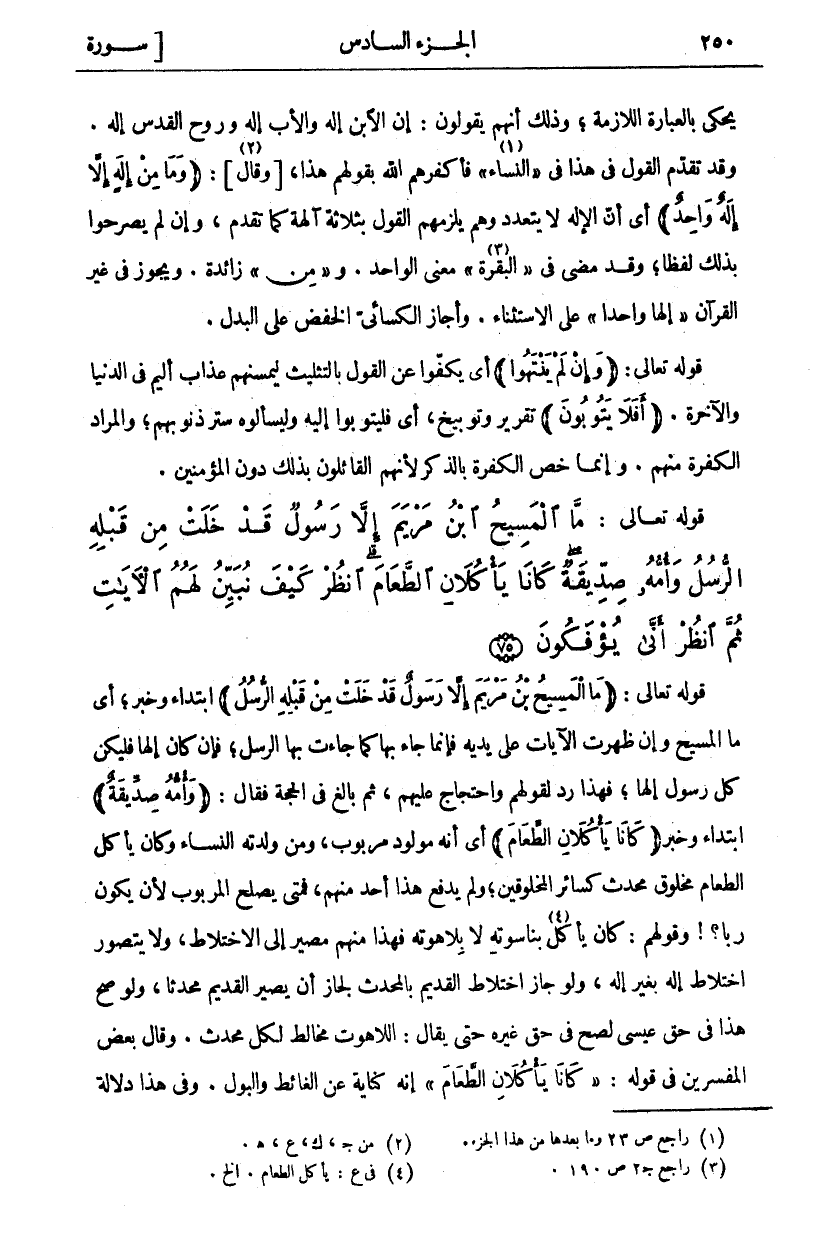 ٢٥٠ الجـزء السـادس [ ســورة
يحكى بالعبارة اللازمة ؛ وذلك أنهم يقولون : إن الآبن إله والأب إله وروح القدس إله .
وقد تقدّم القول فى هذا فى «النساء»(١) فأكفرهم الله بقولهم هذا، [وقال](٢) : ﴿وَمَا مِنْ إِلَهٍ إِلَّا
إِلَهٌ وَاحِدٌ﴾ أى أنّ الإله لا يتعدد وهم يلزمهم القول بثلاثة آلهة كما تقدم ، وإن لم يصرحوا
بذلك لفظا؛ وقـد مضى فى «البقرة»(٣) معنى الواحد . و«مِن» زائدة . ويجوز فى غير
القرآن «إلها واحدا» على الاستثناء . وأجاز الكسائىّ الخفض على البدل .
قوله تعالى: ﴿وَإِنْ لَمْ يَنْتَهُوا﴾ أى يكفّوا عن القول بالتثليث ليمسنهم عذاب أليم فى الدنيا
والآخرة . ﴿أَفَلَا يَتُوبُونَ﴾ تقرير وتوبيخ، أى فليتوبوا إليه وليسألوه ستر ذنوبهم؛ والمراد
الكفرة منهم . وإنمـا خص الكفرة بالذكر لأنهم القائلون بذلك دون المؤمنين .
قوله تعـالى : مَّا ٱلْمَسِيحُ ٱبْنُ مَرْيَمَ إِلَّا رَسُولٌ قَدْ خَلَتْ مِن قَبْلِهِ
ٱلرُّسُلُ وَأُمُّهُۥ صِدِّيقَةٌۖ كَانَا يَأْكُلَانِ ٱلطَّعَامَۗ ٱنظُرْ كَيْفَ نُبَيِّنُ لَهُمُ ٱلْأٓيَٰتِ
ثُمَّ ٱنظُرْ أَنَّىٰ يُؤْفَكُونَ ﴿٧٥﴾
قوله تعالى : ﴿مَا الْمَسِيحُ بْنُ مَرْيَمَ إِلَّا رَسُولٌ قَدْ خَلَتْ مِنْ قَبْلِهِ الرُّسُلُ﴾ ابتداء وخبر؛ أى
ما المسيح وإن ظهرت الآيات على يديه فإنما جاء بها كما جاءت بها الرسل؛ فإن كان إلها فليكن
كل رسول إلها ؛ فهذا رد لقولهم واحتجاج عليهم ، ثم بالغ فى الحجة فقال : ﴿وَأُمُّهُ صِدِّيقَةٌ﴾
ابتداء وخبر ﴿كَانَا يَأْكُلَانِ الطَّعَامَ﴾ أى أنه مولود مربوب، ومن ولدته النسـاء وكان يأكل
الطعام مخلوق محدث كسائر المخلوقين؛ ولم يدفع هذا أحد منهم، فمتى يصلح المربوب لأن يكون
ربا؟! وقولهم : كان يأكل(٤) بناسوته لا بِلاهوته فهذا منهم مصير إلى الاختلاط، ولا يتصور
اختلاط إله بغير إله ، ولو جاز اختلاط القديم بالمحدث لجاز أن يصير القديم محدثا ، ولو صح
هذا فى حق عيسى لصح فى حق غيره حتى يقال : اللاهوت مخالط لكل محدث . وقال بعض
المفسرين فى قوله : «كَانَا يَأْكُلَانِ الطَّعَامَ» إنه كناية عن الغائط والبول . وفى هذا دلالة
(١) راجع ص ٢٣ وما بعدها من هذا الجزء. (٢) من جـ ، ك، ع ، هـ .
(٣) راجع جـ٢ ص ١٩٠ . (٤) فى ع : يأكل الطعام . الخ .